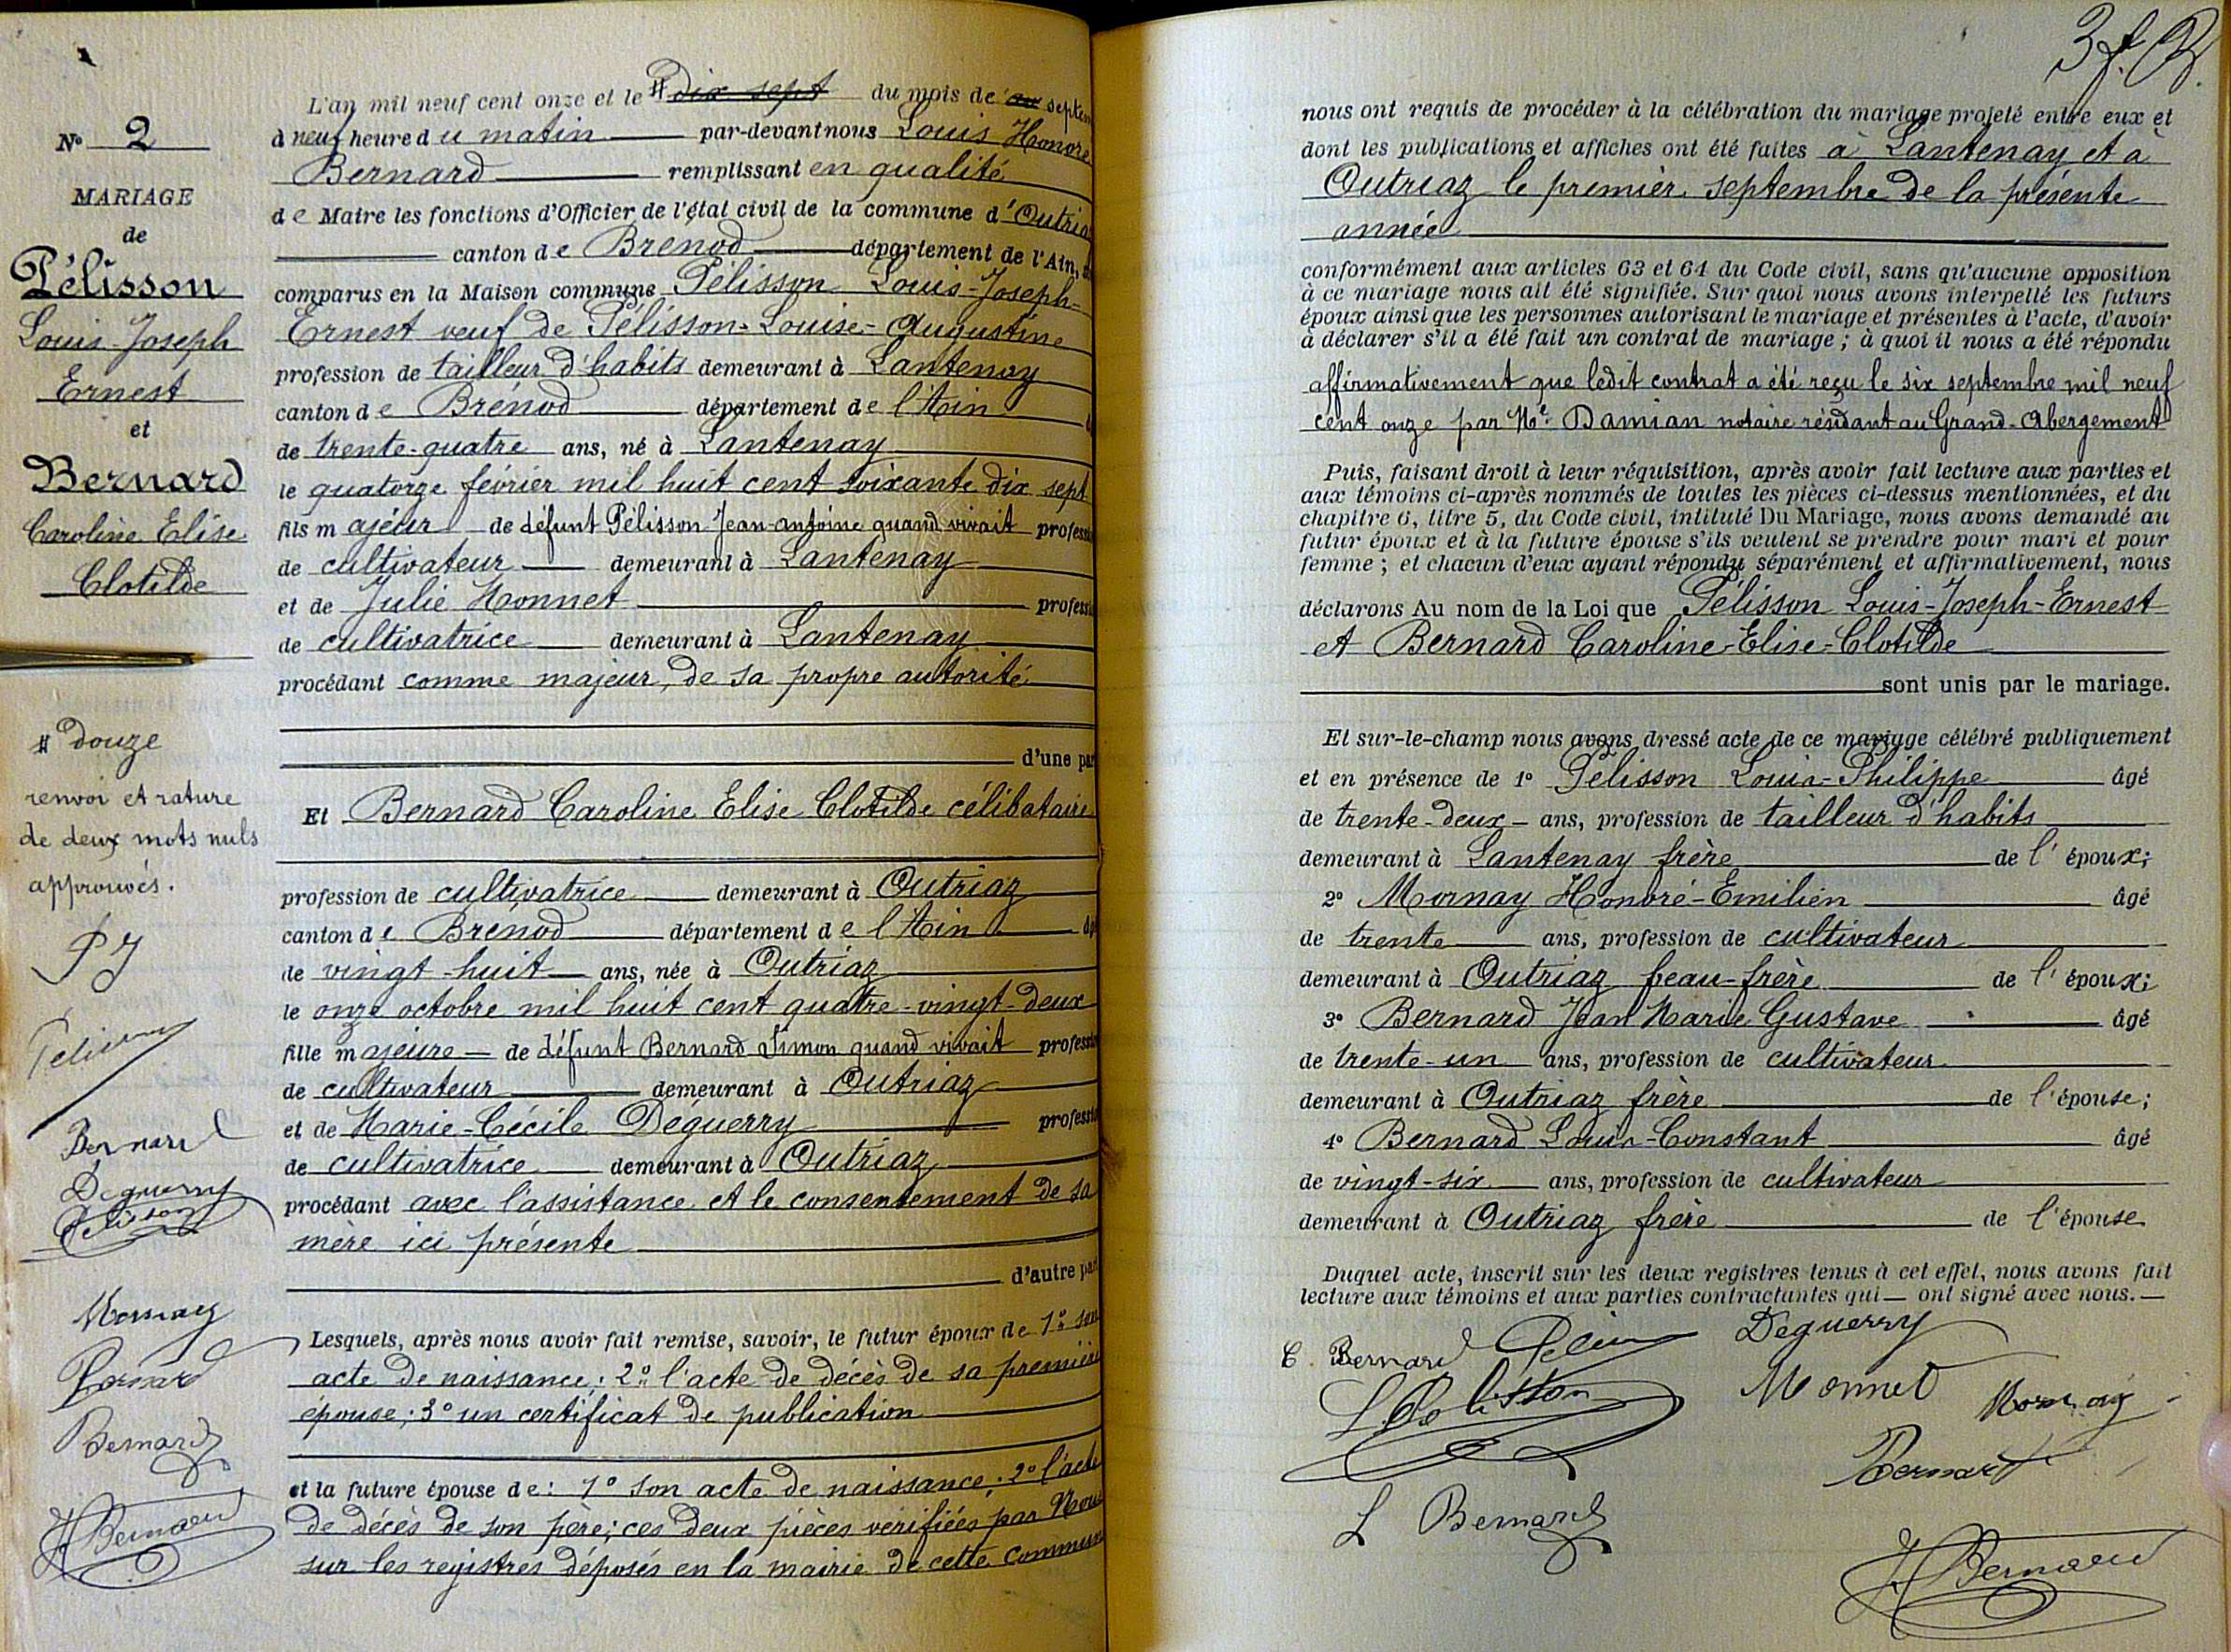 N° 2
MARIAGE
de
Pélisson
Louis-Joseph
Ernest
et
Bernard
Caroline Elise
Clotilde
# douze
renvoi et rature
de deux mots nuls
approuvés.
PJ
Bernard
Deguerry
Pelisson
Mornay
Bernard
Bernard
H Bernard
L'an mil neuf cent onze et le # dix sept du mois de septem
à neuf heure du matin par-devant nous Louis Honoré
Bernard remplissant en qualité
de Maire les fonctions d'Officier de l'état civil de la commune d'Outria
canton de Brénod département de l'Ain,
comparus en la Maison commune Pélisson Louis-Joseph-
Ernest veuf de Pélisson-Louise-Augustine
profession de tailleur d'habits demeurant à Lantenay
canton de Brénod département de l'Ain
de trente-quatre ans, né à Lantenay
le quatorze février mil huit cent soixante dix sept
fils majeur de défunt Pélisson Jean-antoine quand vivait professi
de cultivateur demeurant à Lantenay
et de Julie Monnet professi
de cultivatrice demeurant à Lantenay
procédant comme majeur, de sa propre autorité
d'une par
Et Bernard Caroline Elise Clotilde célibataire
profession de cultivatrice demeurant à Outriaz
canton de Brénod département de l'Ain âgé
de vingt-huit ans, née à Outriaz
le onze octobre mil huit cent quatre-vingt-deux
fille majeure de défunt Bernard Simon quand vivait professio
de cultivateur demeurant à Outriaz
et de Marie-Cécile Déguerry professio
de cultivatrice demeurant à Outriaz
procédant avec l'assistance et le consentement de sa
mère ici présente
d'autre par
Lesquels, après nous avoir fait remise, savoir, le futur époux de 1° son
acte de naissance; 2° l'acte de décès de sa première
épouse; 3° un certificat de publication
et la future épouse de: 1° son acte de naissance; 2° l'acte
de décès de son père; ces deux pièces vérifiées par Nous
sur les registres déposés en la mairie de cette commun
3
nous ont requis de procéder à la célébration du mariage projeté entre eux et
dont les publications et affiches ont été faites à Lantenay et à
Outriaz le premier septembre de la présente
année
conformément aux articles 63 et 64 du Code civil, sans qu'aucune opposition
à ce mariage nous ait été signifiée. Sur quoi nous avons interpellé les futurs
époux ainsi que les personnes autorisant le mariage et présentes à l'acte, d'avoir
à déclarer s'il a été fait un contrat de mariage; à quoi il nous a été répondu
affirmativement que ledit contrat a été reçu le six septembre mil neuf
cent onze par Me Damian notaire résidant au Grand-Abergement
Puis, faisant droit à leur réquisition, après avoir fait lecture aux parties et
aux témoins ci-après nommés de toutes les pièces ci-dessus mentionnées, et du
chapitre 6, titre 5, du Code civil, intitulé Du Mariage, nous avons demandé au
futur époux et à la future épouse s'ils veulent se prendre pour mari et pour
femme; et chacun d'eux ayant répondu séparément et affirmativement, nous
déclarons Au nom de la Loi que Pélisson Louis-Joseph-Ernest
et Bernard Caroline-Elise-Clotilde
sont unis par le mariage.
Et sur-le-champ nous avons dressé acte de ce mariage célébré publiquement
et en présence de 1° Pélisson Louis-Philippe âgé
de trente-deux ans, profession de tailleur d'habits
demeurant à Lantenay frère de l'époux;
2° Mornay Honoré-Emilien âgé
de trente ans, profession de cultivateur
demeurant à Outriaz beau-frère de l'époux;
3° Bernard Jean Marie Gustave âgé
de trente-un ans, profession de cultivateur
demeurant à Outriaz frère de l'épouse;
4° Bernard Louis-Constant âgé
de vingt-six ans, profession de cultivateur
demeurant à Outriaz frère de l'épouse
Duquel acte, inscrit sur les deux registres tenus à cet effet, nous avons fait
lecture aux témoins et aux parties contractantes qui ont signé avec nous.
C. Bernard Deguerry
L Pelisson Monnet Mornay
Bernard
L Bernard
H Bernard